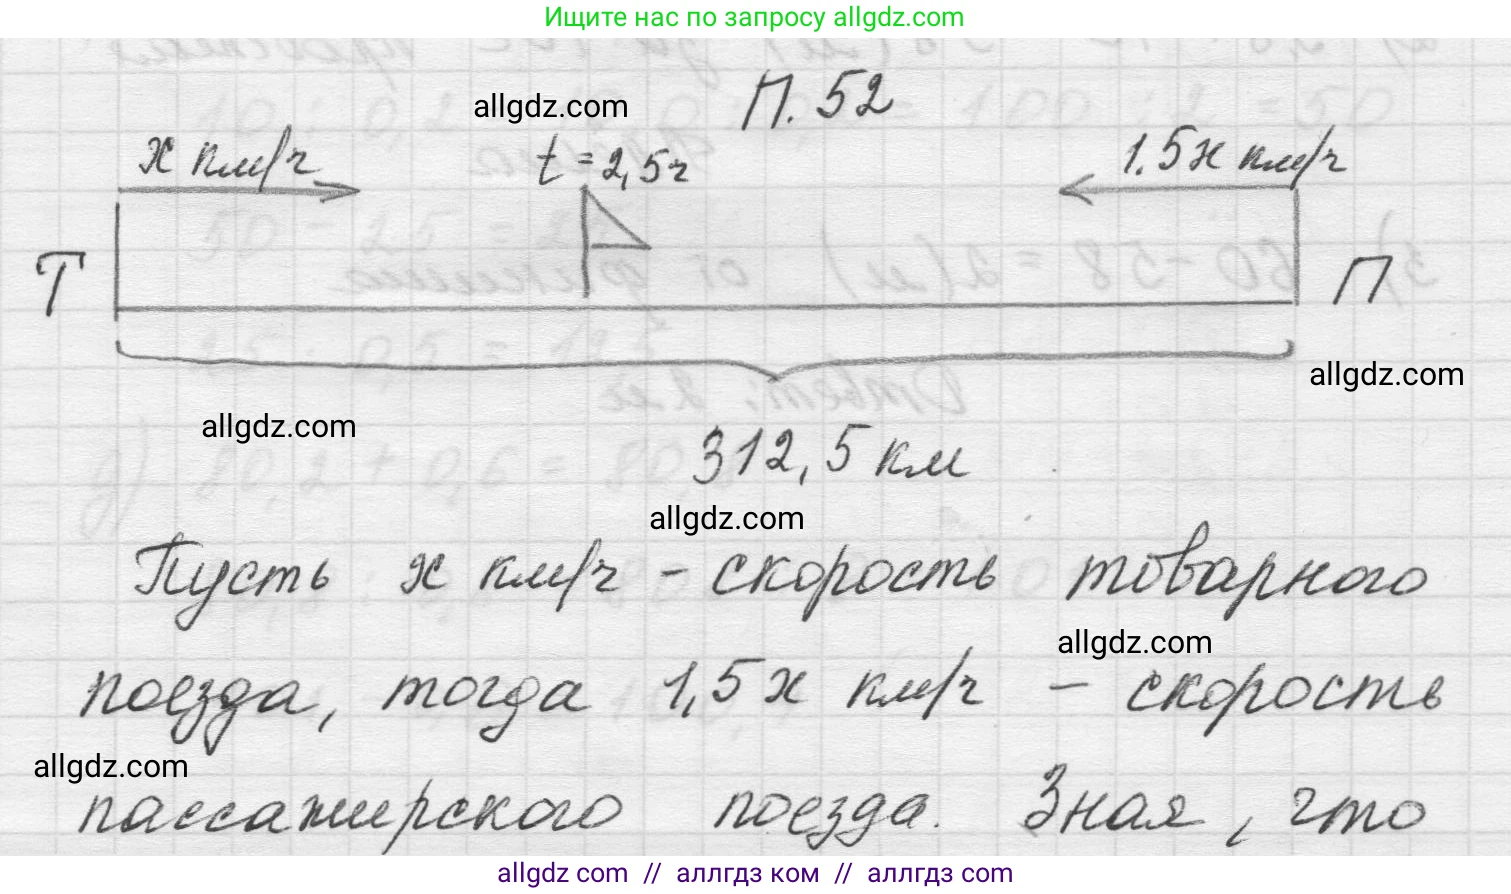 Ищите нас по запросу allgdz.com
П. 52
allgdz.com
х км/ч
t = 2,5 ч
1.5х км/ч
Т
П
allgdz.com
allgdz.com
312,5 км
allgdz.com
Пусть х км/ч - скорость товарного
allgdz.com
поезда, тогда 1,5 х км/ч - скорость
allgdz.com
пассажирского поезда. Зная, что
allgdz com // аллгдз ком // аллгдз com